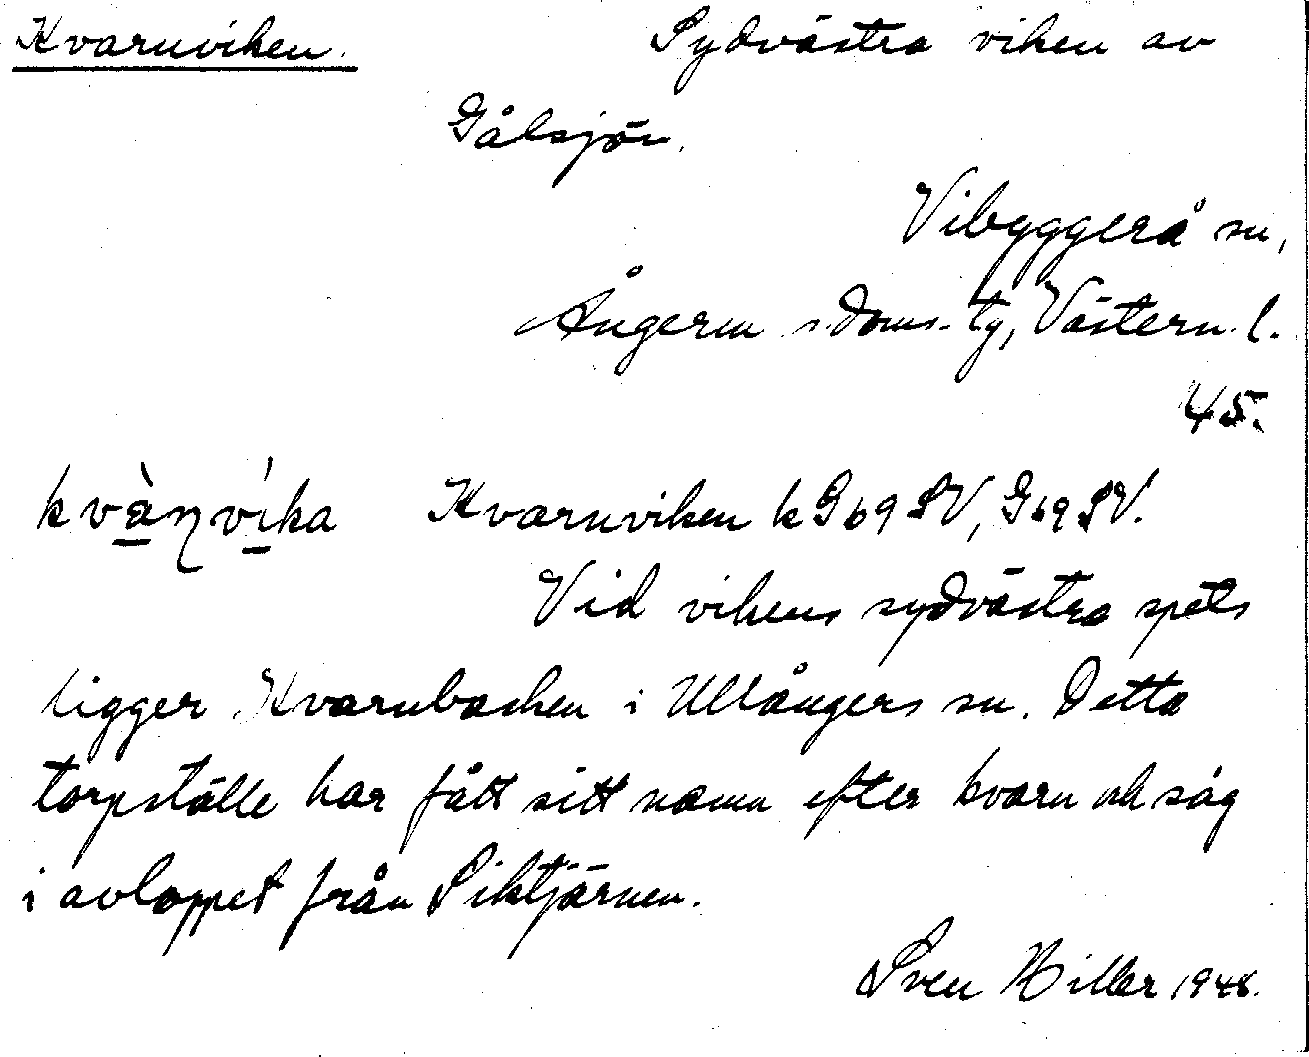 Kvarnviken. Sydvästra viken av
Gålsjön.
Vibyggerå sn,
Ångerm s. doms. tg, Västern. l.
45.
kvà̱ɳví̱ka Kvarnviken k G 69 SV, G 69 SV.
Vid vikens sydvästra spets
ligger Kvarnbacken i Ullångers sn. Detta
torpställe har fått sitt namn efter kvarn och såg
i avloppet från Siktjärnen.
Sven Hiller 1948.